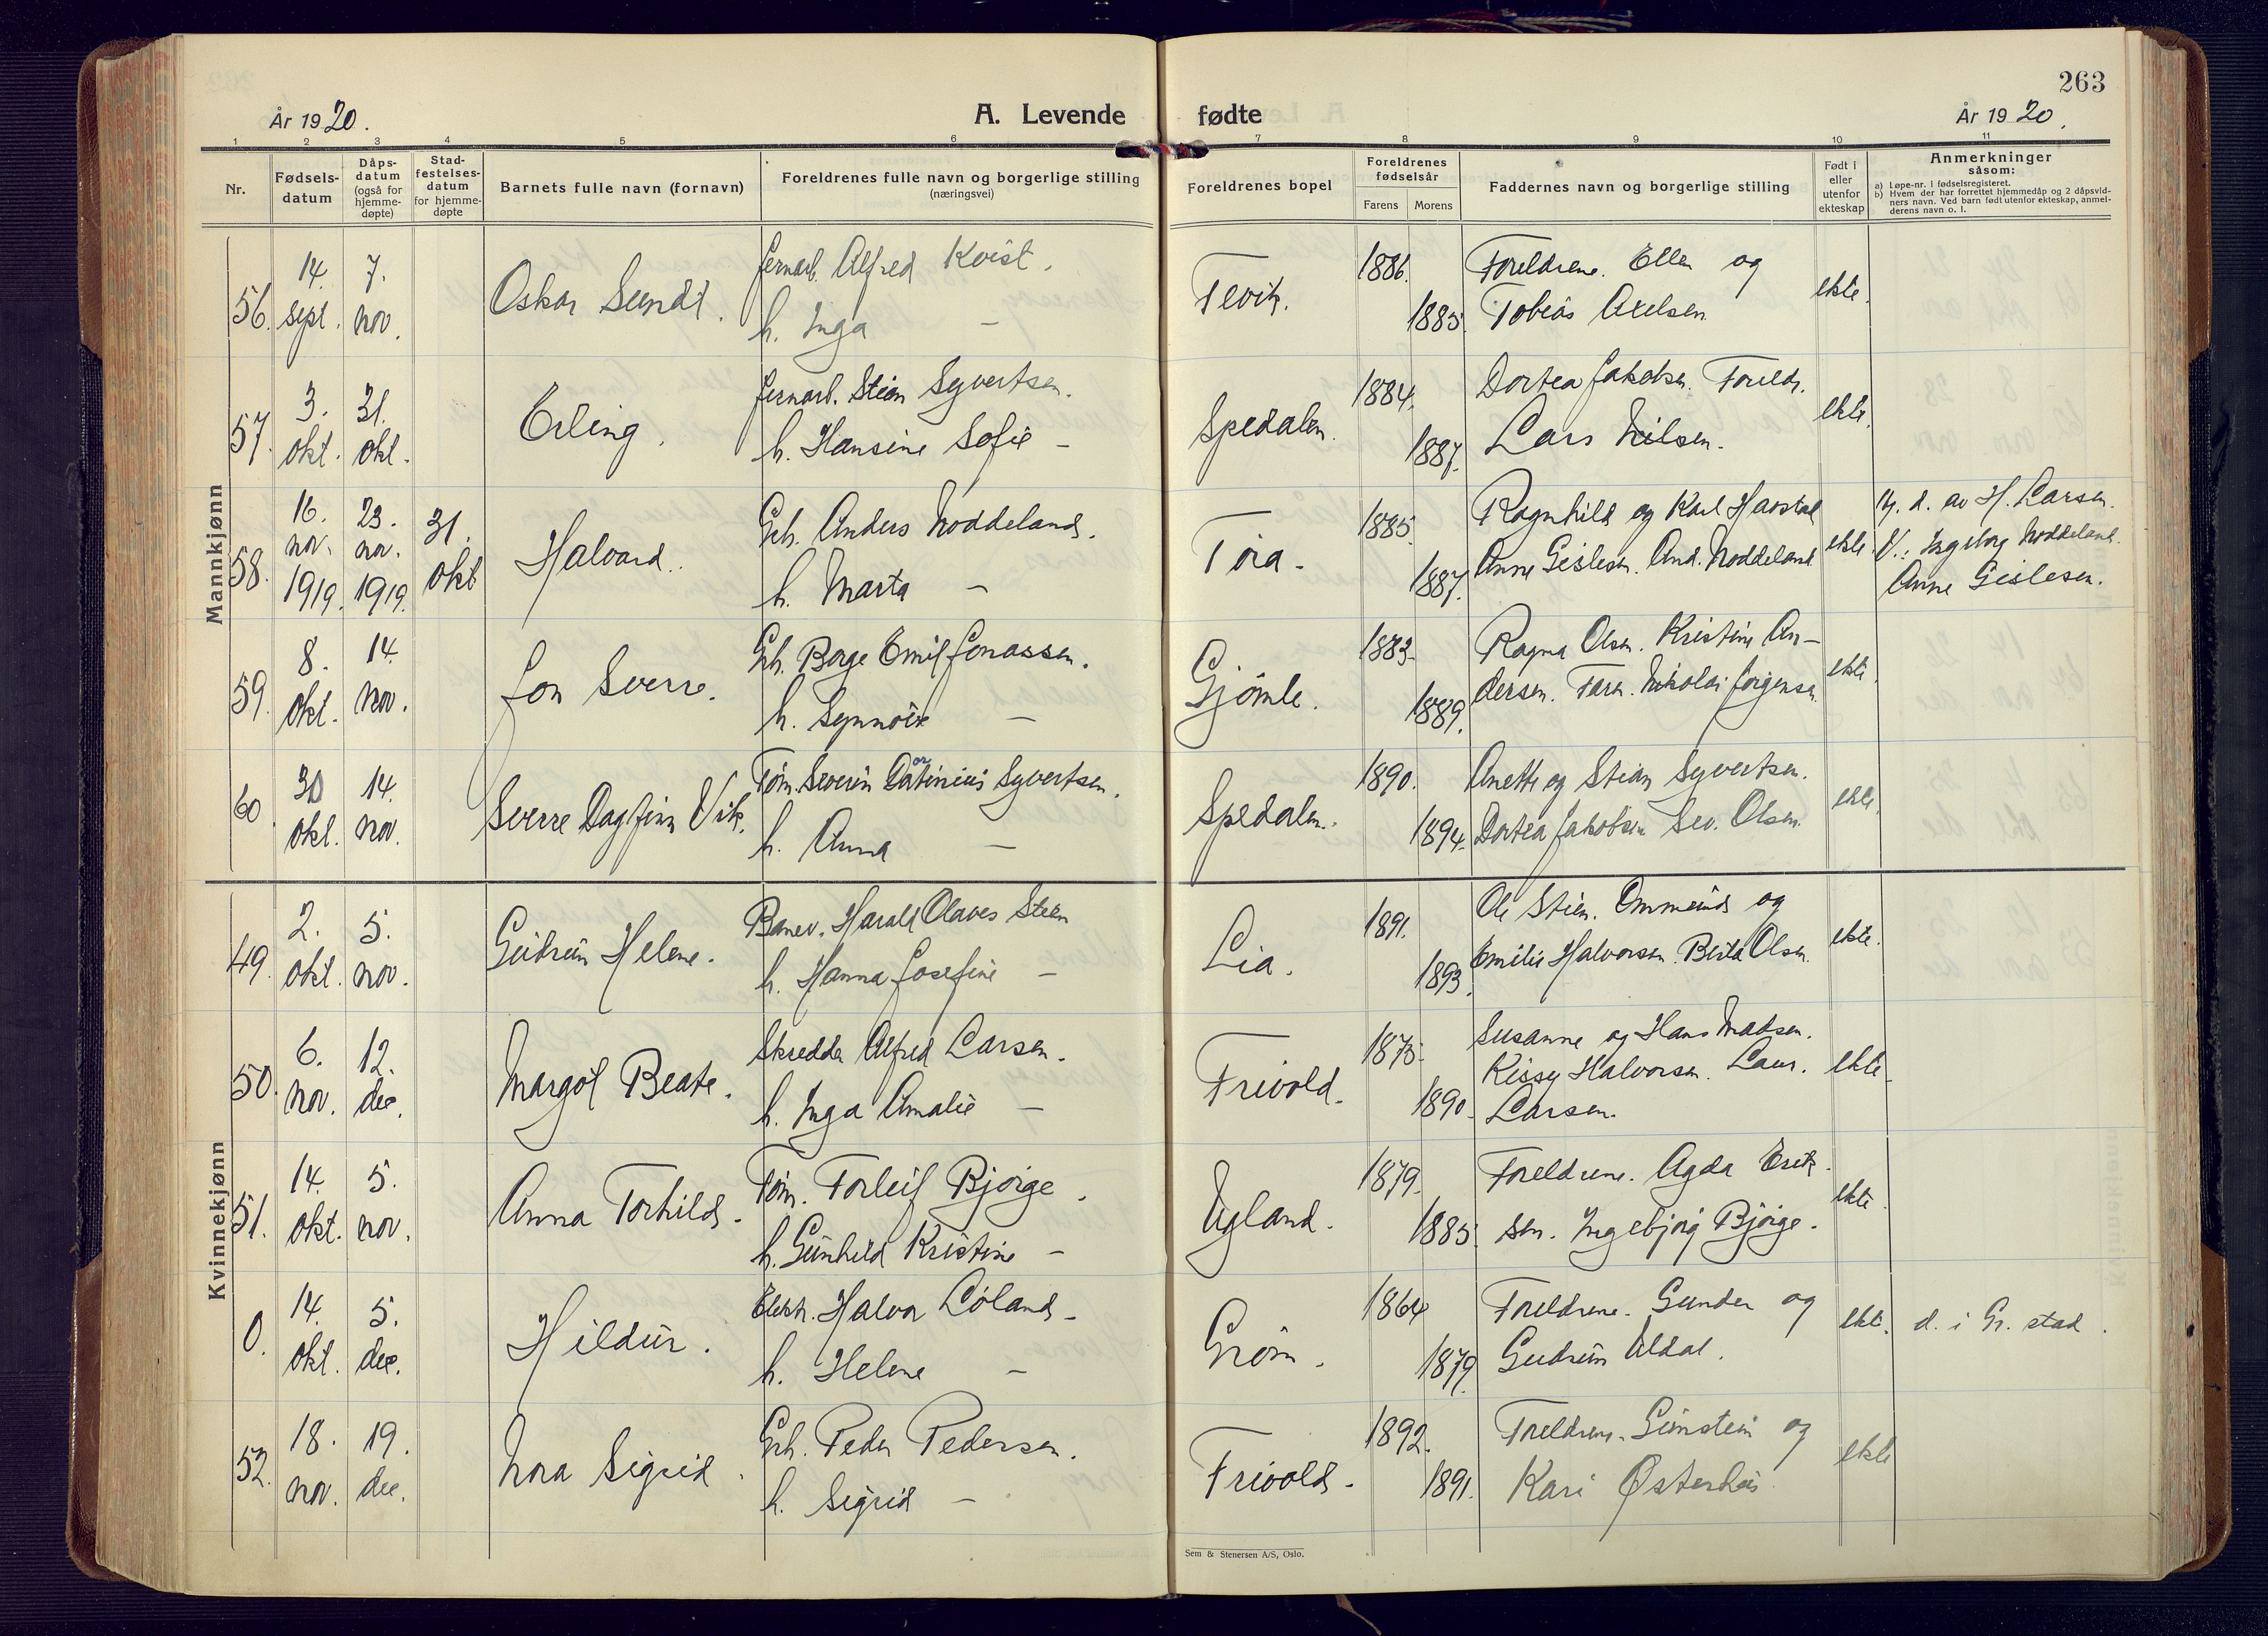 263
År 1920.
A. Levende fødte
År 1920.
1 2 3 4 5 6 7 8 9 10 11
Nr.
Fødsels-
datum
Dåps-
datum
(også for
hjemme-
døpte)
Stad-
festelses-
datum
for hjemme-
døpte
Barnets fulle navn (fornavn)
Foreldrenes fulle navn og borgerlige stilling
(næringsvei)
Foreldrenes bopel
Foreldrenes
fødselsår
Farens Morens
Faddernes navn og borgerlige stilling
Født i
eller
utenfor
ekteskap
Anmerkninger
såsom:
a) Løpe-nr. i fødselsregisteret.
b) Hvem der har forrettet hjemmedåp og 2 dåpsvid-
ners navn. Ved barn født utenfor ekteskap, anmel-
derens navn o. l.
Mannkjønn
56. 14. sept. 7. nov. Oskar Sundt. Jernarb. Alfred Kvist. Fevik. 1886. Foreldrene. Ellen og ekte.
h. Inga — 1885. Tobias Axelsen.
57. 3. okt. 31. okt. Erling. Jernarb. Stian Syvertsen. Spedalen. 1884. Dortea Jakobsen. Foreldr. ekte.
h. Hansine Sofie — 1887. Lars Nilsen.
58. 16. nov. 1919. 23. nov. 1919. 31. okt Halvard. Grb. Anders Noddeland. Tora. 1885. Ragnhild og Karl Havstad ekte. Hj. d. av H. Larsen.
h. Marta — 1887. Anne Gislesen. And. Noddeland V.: Ingeborg Noddeland.
Anne Gislesen.
59. 8. okt. 14. nov. Jon Sverre. Grb. Borge Emil Jonassen. Gjömle. 1883. Ragna Olsen. Kristine An- ekte.
h. Synnöve — 1889. dersen. Faren. Nikolai Jørgensen.
60. 30 okt. 14. nov. Sverre Dagfinn Vik. Tøm. Severin Datinius Syvertsen. Spedalen. 1890. Anette og Stian Syvertsen. ekte.
h. Anna — 1894. Dortea Jakobsen Sev. Olsen.
Kvinnekjønn
49. 2. okt. 5. nov. Gudrun Helene. Banev. Harald Olaves Steen Lia. 1891. Ole Steen. Ommund og ekte.
h. Hanna Josefine — 1893. Emilie Halvorsen. Berta Olsen.
50. 6. nov. 12. des. Margot Beate. Skredder Alfred Larsen. Frivold. 1875. Susanne og Hans Madsen. ekte.
h. Inga Amalie — 1890. Kissy Halvorsen. Laur.
Larsen.
51. 14. okt. 5. nov. Anna Torhild. Tøm. Torleif Bjorge. Ugland. 1879. Foreldrene. Agda Erik- ekte.
h. Gunhild Kristine — 1885. sen. Ingebjørg Bjorge.
0. 14. okt. 5. des. Hildur. Elektr. Halvor Løland. Grøm. 1864 Foreldrene. Gunder og ekte. d. i Gr. stad.
h. Helene — 1879. Gudrun Uldal.
52. 18. nov. 19. des. Nora Sigrid. Grb. Peder Pedersen. Frivold. 1892. Foreldrene. Gunstein og ekte
h. Sigrid — 1891. Kari Østerhus.
Sem & Stenersen A/S, Oslo.